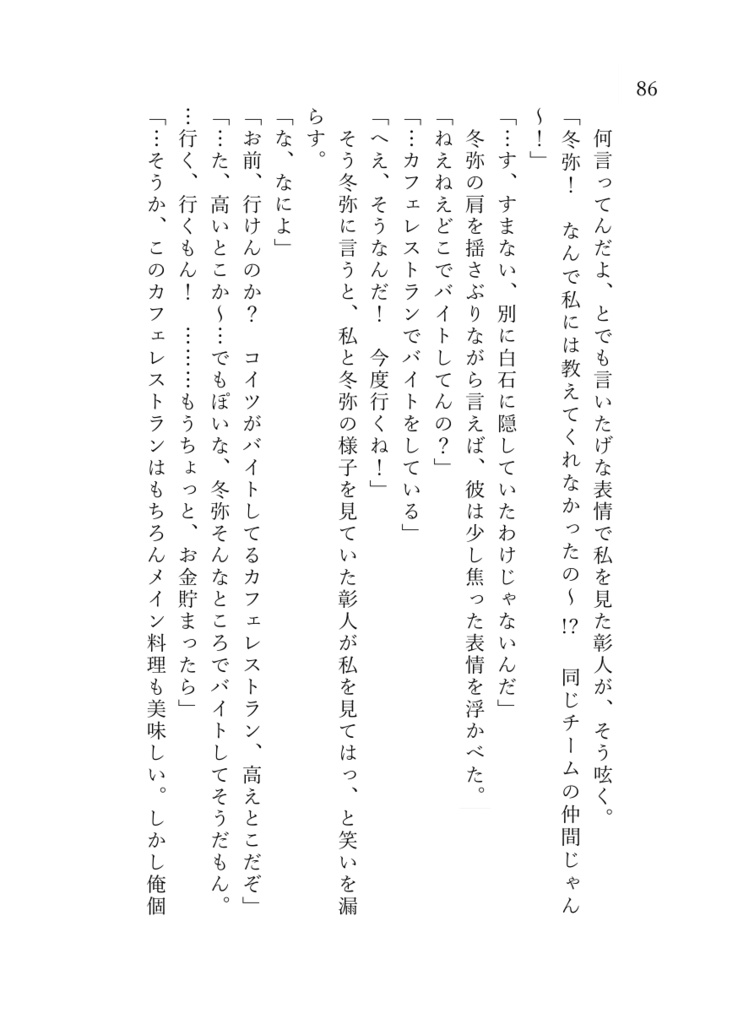 86
何言ってんだよ、とでも言いたげな表情で私を見た彰人が、そう呟く。
「冬弥！　なんで私には教えてくれなかったの〜!?　同じチームの仲間じゃん
〜！」
「…す、すまない、別に白石に隠していたわけじゃないんだ」
冬弥の肩を揺さぶりながら言えば、彼は少し焦った表情を浮かべた。
「ねえねえどこでバイトしてんの？」
「…カフェレストランでバイトをしている」
「へえ、そうなんだ！　今度行くね！」
そう冬弥に言うと、私と冬弥の様子を見ていた彰人が私を見てはっ、と笑いを漏
らす。
「な、なによ」
「お前、行けんのか？　コイツがバイトしてるカフェレストラン、高えとこだぞ」
「…た、高いとこか〜…でもぽいな、冬弥そんなところでバイトしてそうだもん。
…行く、行くもん！　………もうちょっと、お金貯まったら」
「…そうか、このカフェレストランはもちろんメイン料理も美味しい。しかし俺個